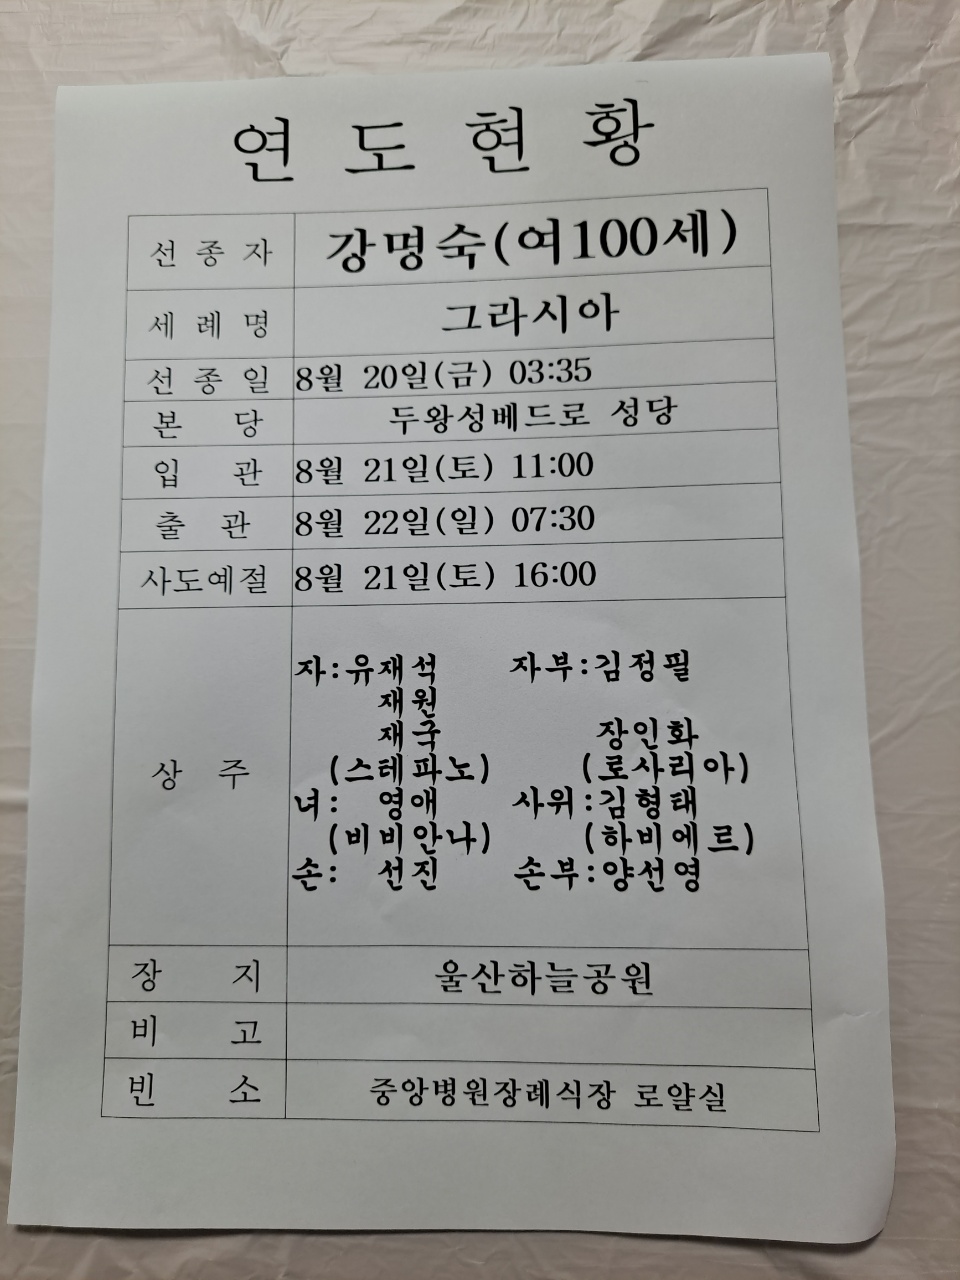 연 도 현 황
선 종 자 강명숙(여100세)
세 례 명 그라시아
선 종 일 8월 20일(금) 03:35
본 당 두왕성베드로 성당
입 관 8월 21일(토) 11:00
출 관 8월 22일(일) 07:30
사도예절 8월 21일(토) 16:00
상 주
자:유재석 자부:김정필
재원
재국 장인화
(스테파노) (로사리아)
녀: 영애 사위:김형태
(비비안나) (하비에르)
손: 선진 손부:양선영
장 지 울산하늘공원
비 고
빈 소 중앙병원장례식장 로얄실